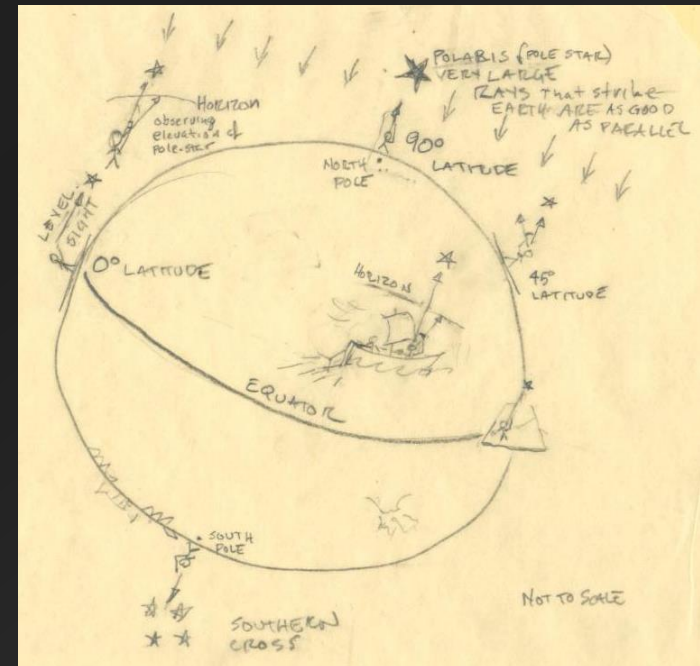 POLARIS (POLE STAR)
VERY LARGE
RAYS that strike
EARTH ARE AS GOOD
AS PARALLEL
HORIZON
observing
elevation of
pole-star
90°
LATITUDE
NORTH
POLE
LEVEL
SIGHT
0° LATITUDE
45°
LATITUDE
HORIZON
EQUATOR
SOUTH
POLE
SOUTHERN
CROSS
NOT TO SCALE